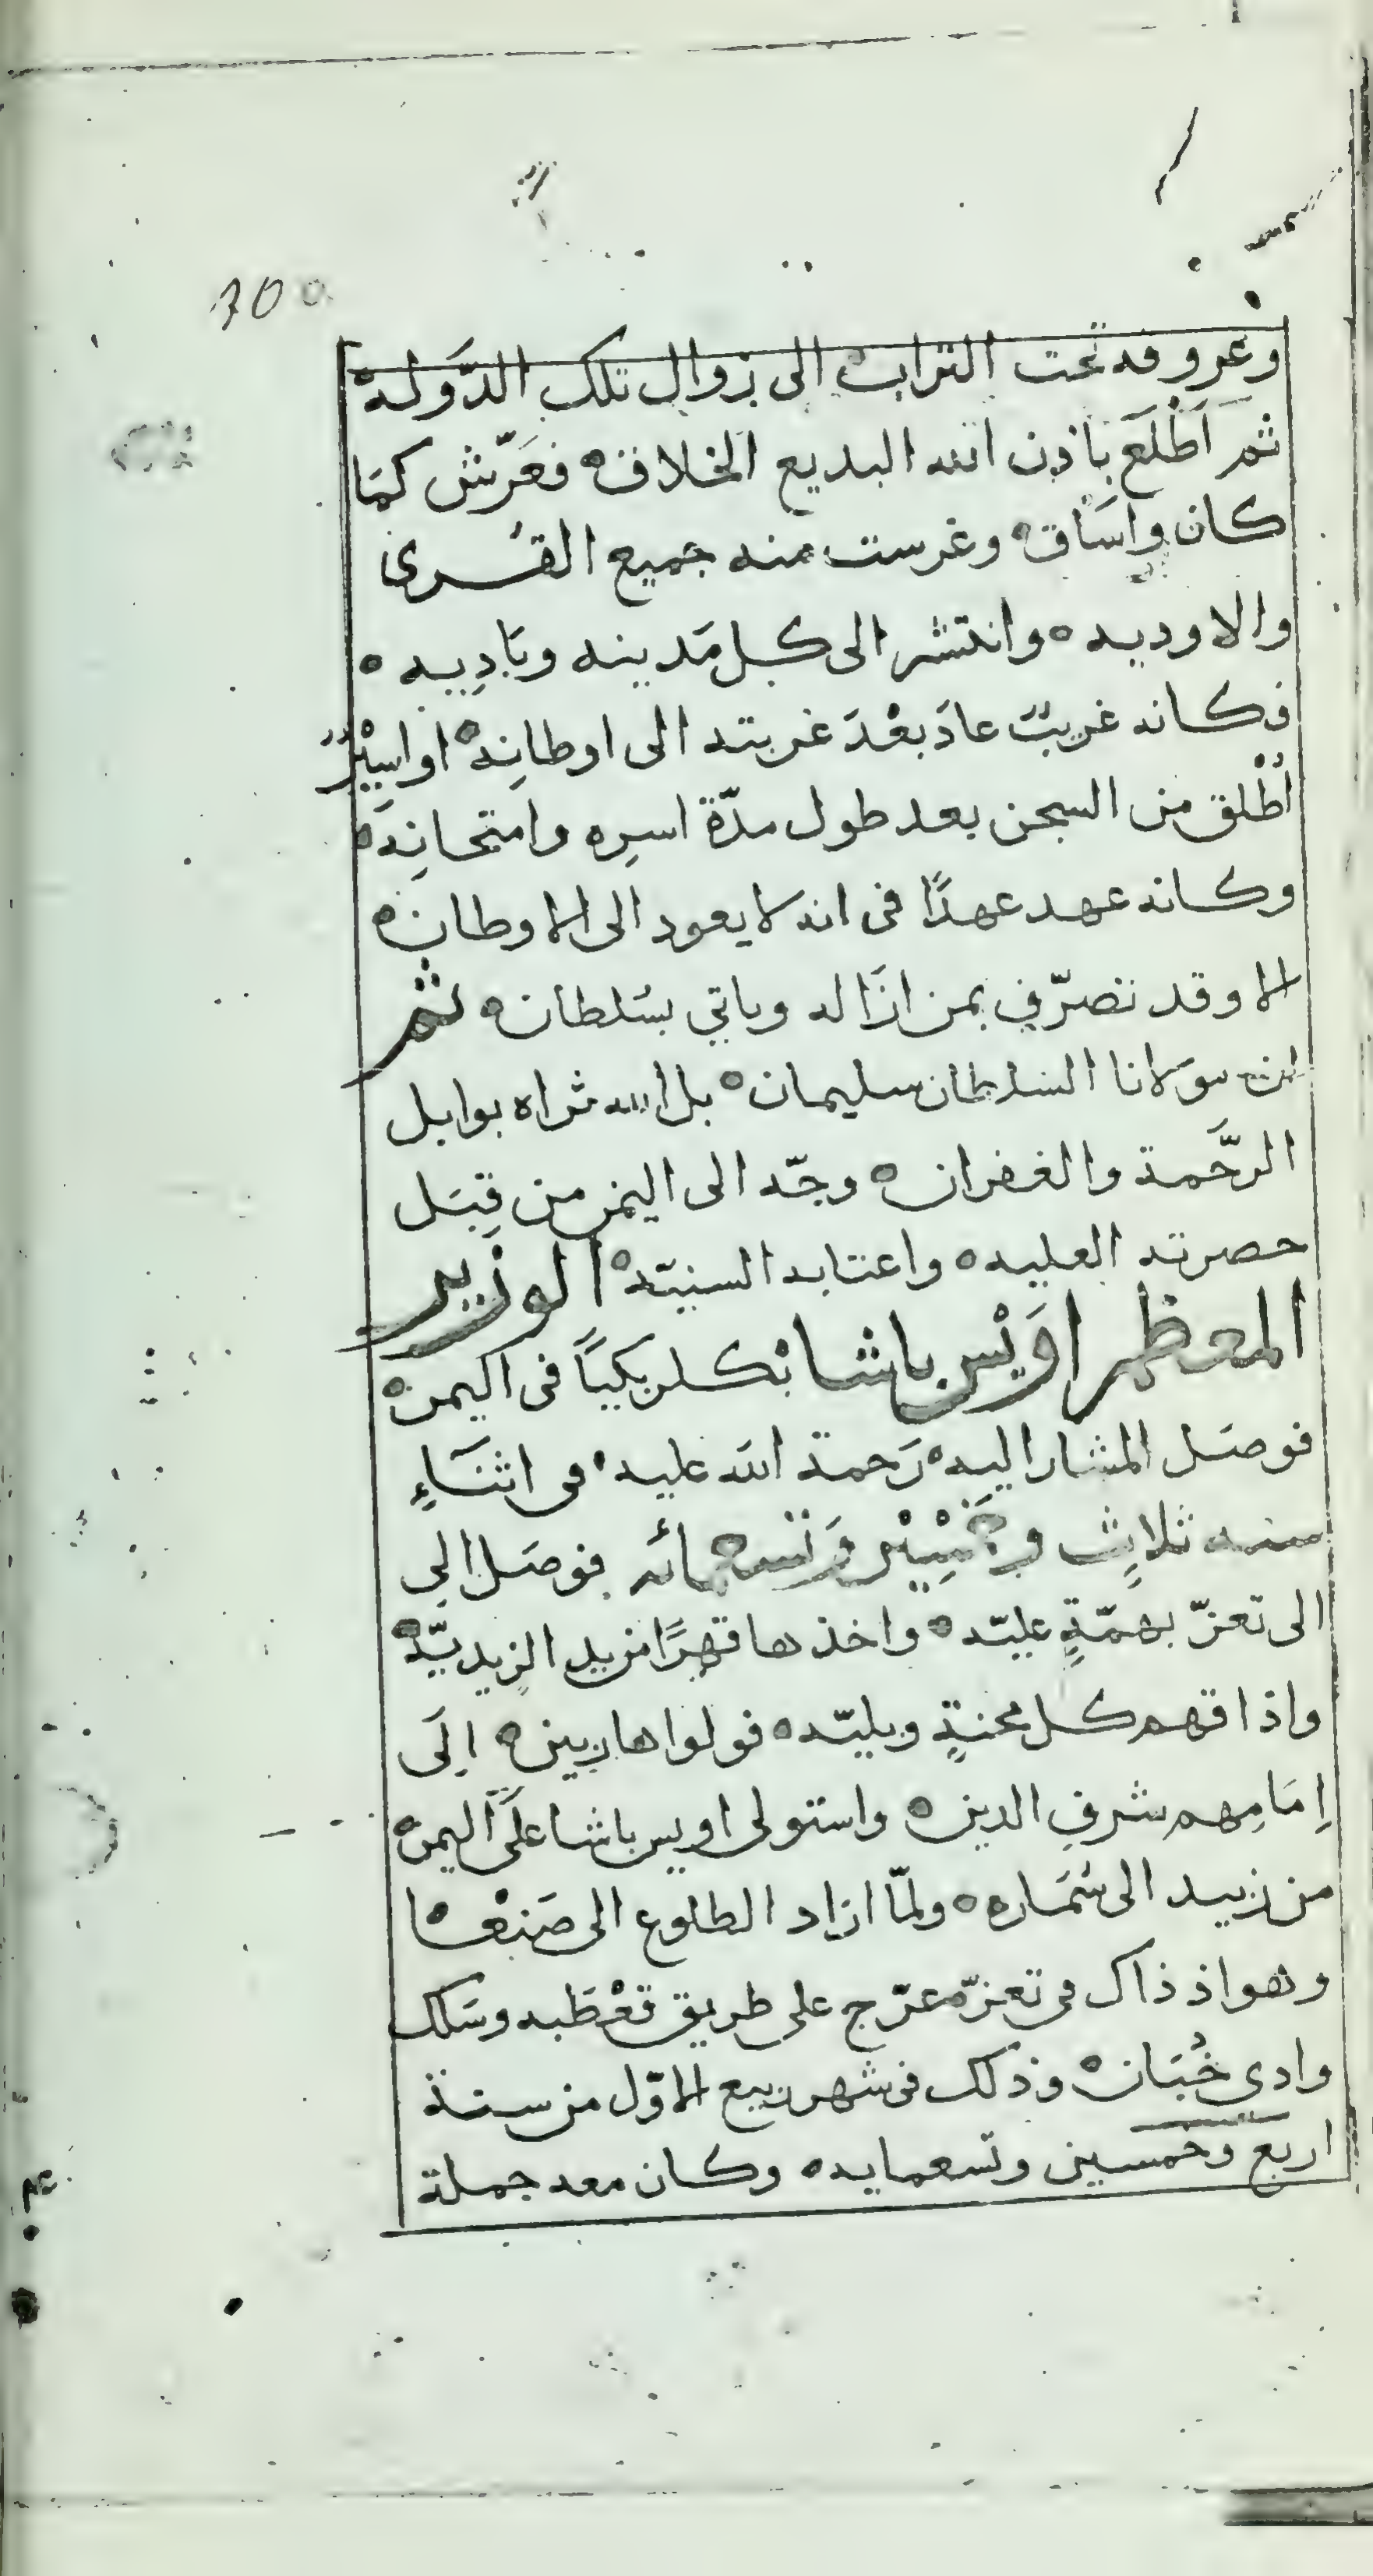 700
وعروقه تحت التراب ه الى زوال تلك الدَّوله ه
ثم اَطْلَعَ باذن الله البديع الخلاق ه فعَرّش كمَا
كان واسَاق ه وغرست منه جميع القُرى
والاوديه ه وانتشر الى كل مَدينه وبَادِيه ه
فكانه غريبٌ عادَ بعْدَ غربته الى اوطانِه ه او اسِيْرٌ
اُطْلق من السجن بعد طول مدّة اسرِه وامتحانِه ه
وكانه عهد عهدًا فى انه لا يعود الى الاوطان ه
الا وقد تصرّف بمن ازَاله وياتي بسُلطان ه ثم
ان مَولانا السلطان سليمان ه بل الله ثراه بوابل
الرَّحمة والغفران ه وجّه الى اليمن من قِبَل
حصرته العليه ه واعتابه السنيّه ه الوزير
المعظم اوَيْس باشا بكلربكيًا فى اليمن ه
فوصَل المشار اليه ه رَحمة الله عليه ه فى اثنَاءِ
سنه ثلاثٍ وخمْسِيْن وَتسعمائه فوصَل الى
الى تعزّ بهمّةٍ عليّه ه واخذها قهرًا من يد الزيديّه ه
واذاقهم كل محنةٍ وبليّه ه فولوا هاربين ه اِلَى
اِمَامِهم شرفِ الدين ه واستولى اويس باشا علَى اليمن ه
من زبيد الى سُمَاره ه ولمّا اراد الطلوع الى صَنْعا ه
وهو اذ ذاك فى تعزّ ه عرّج على طريق قعْطَبه وسَلك
وادي خُبَان ه وذلك فى شهر ربيع الاوّل من سنة
اربع وخمسين وتسعمايه ه وكان معه جملة